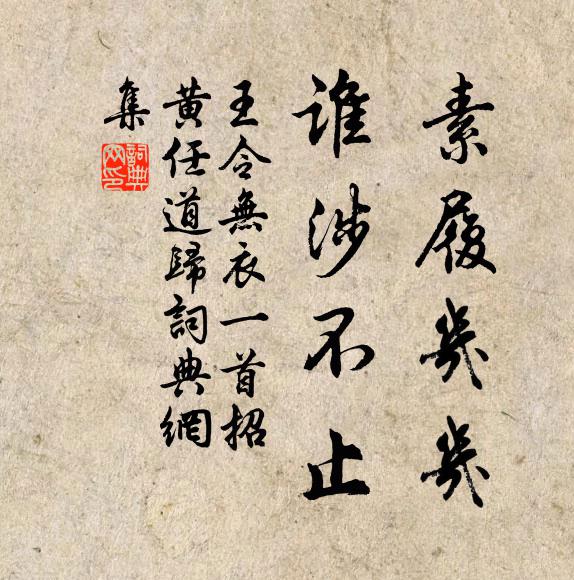 素履幾幾
誰涉不止
王令無衣一首招
黃任道歸詞典網
集
詞典
网印